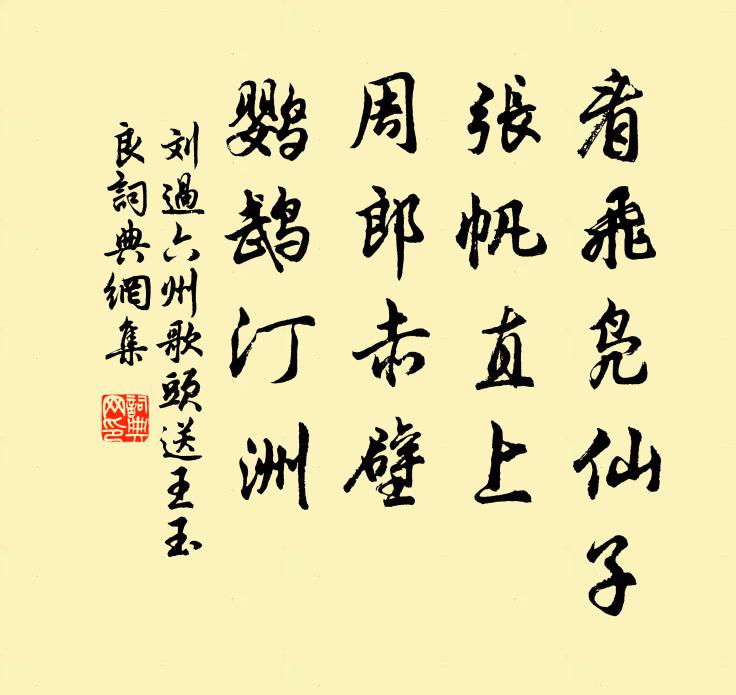 看飛鳧仙子
張帆直上
周郎赤壁
鹦鹉汀洲
刘過六州歌頭送王玉
良詞典網集
詞典
网印